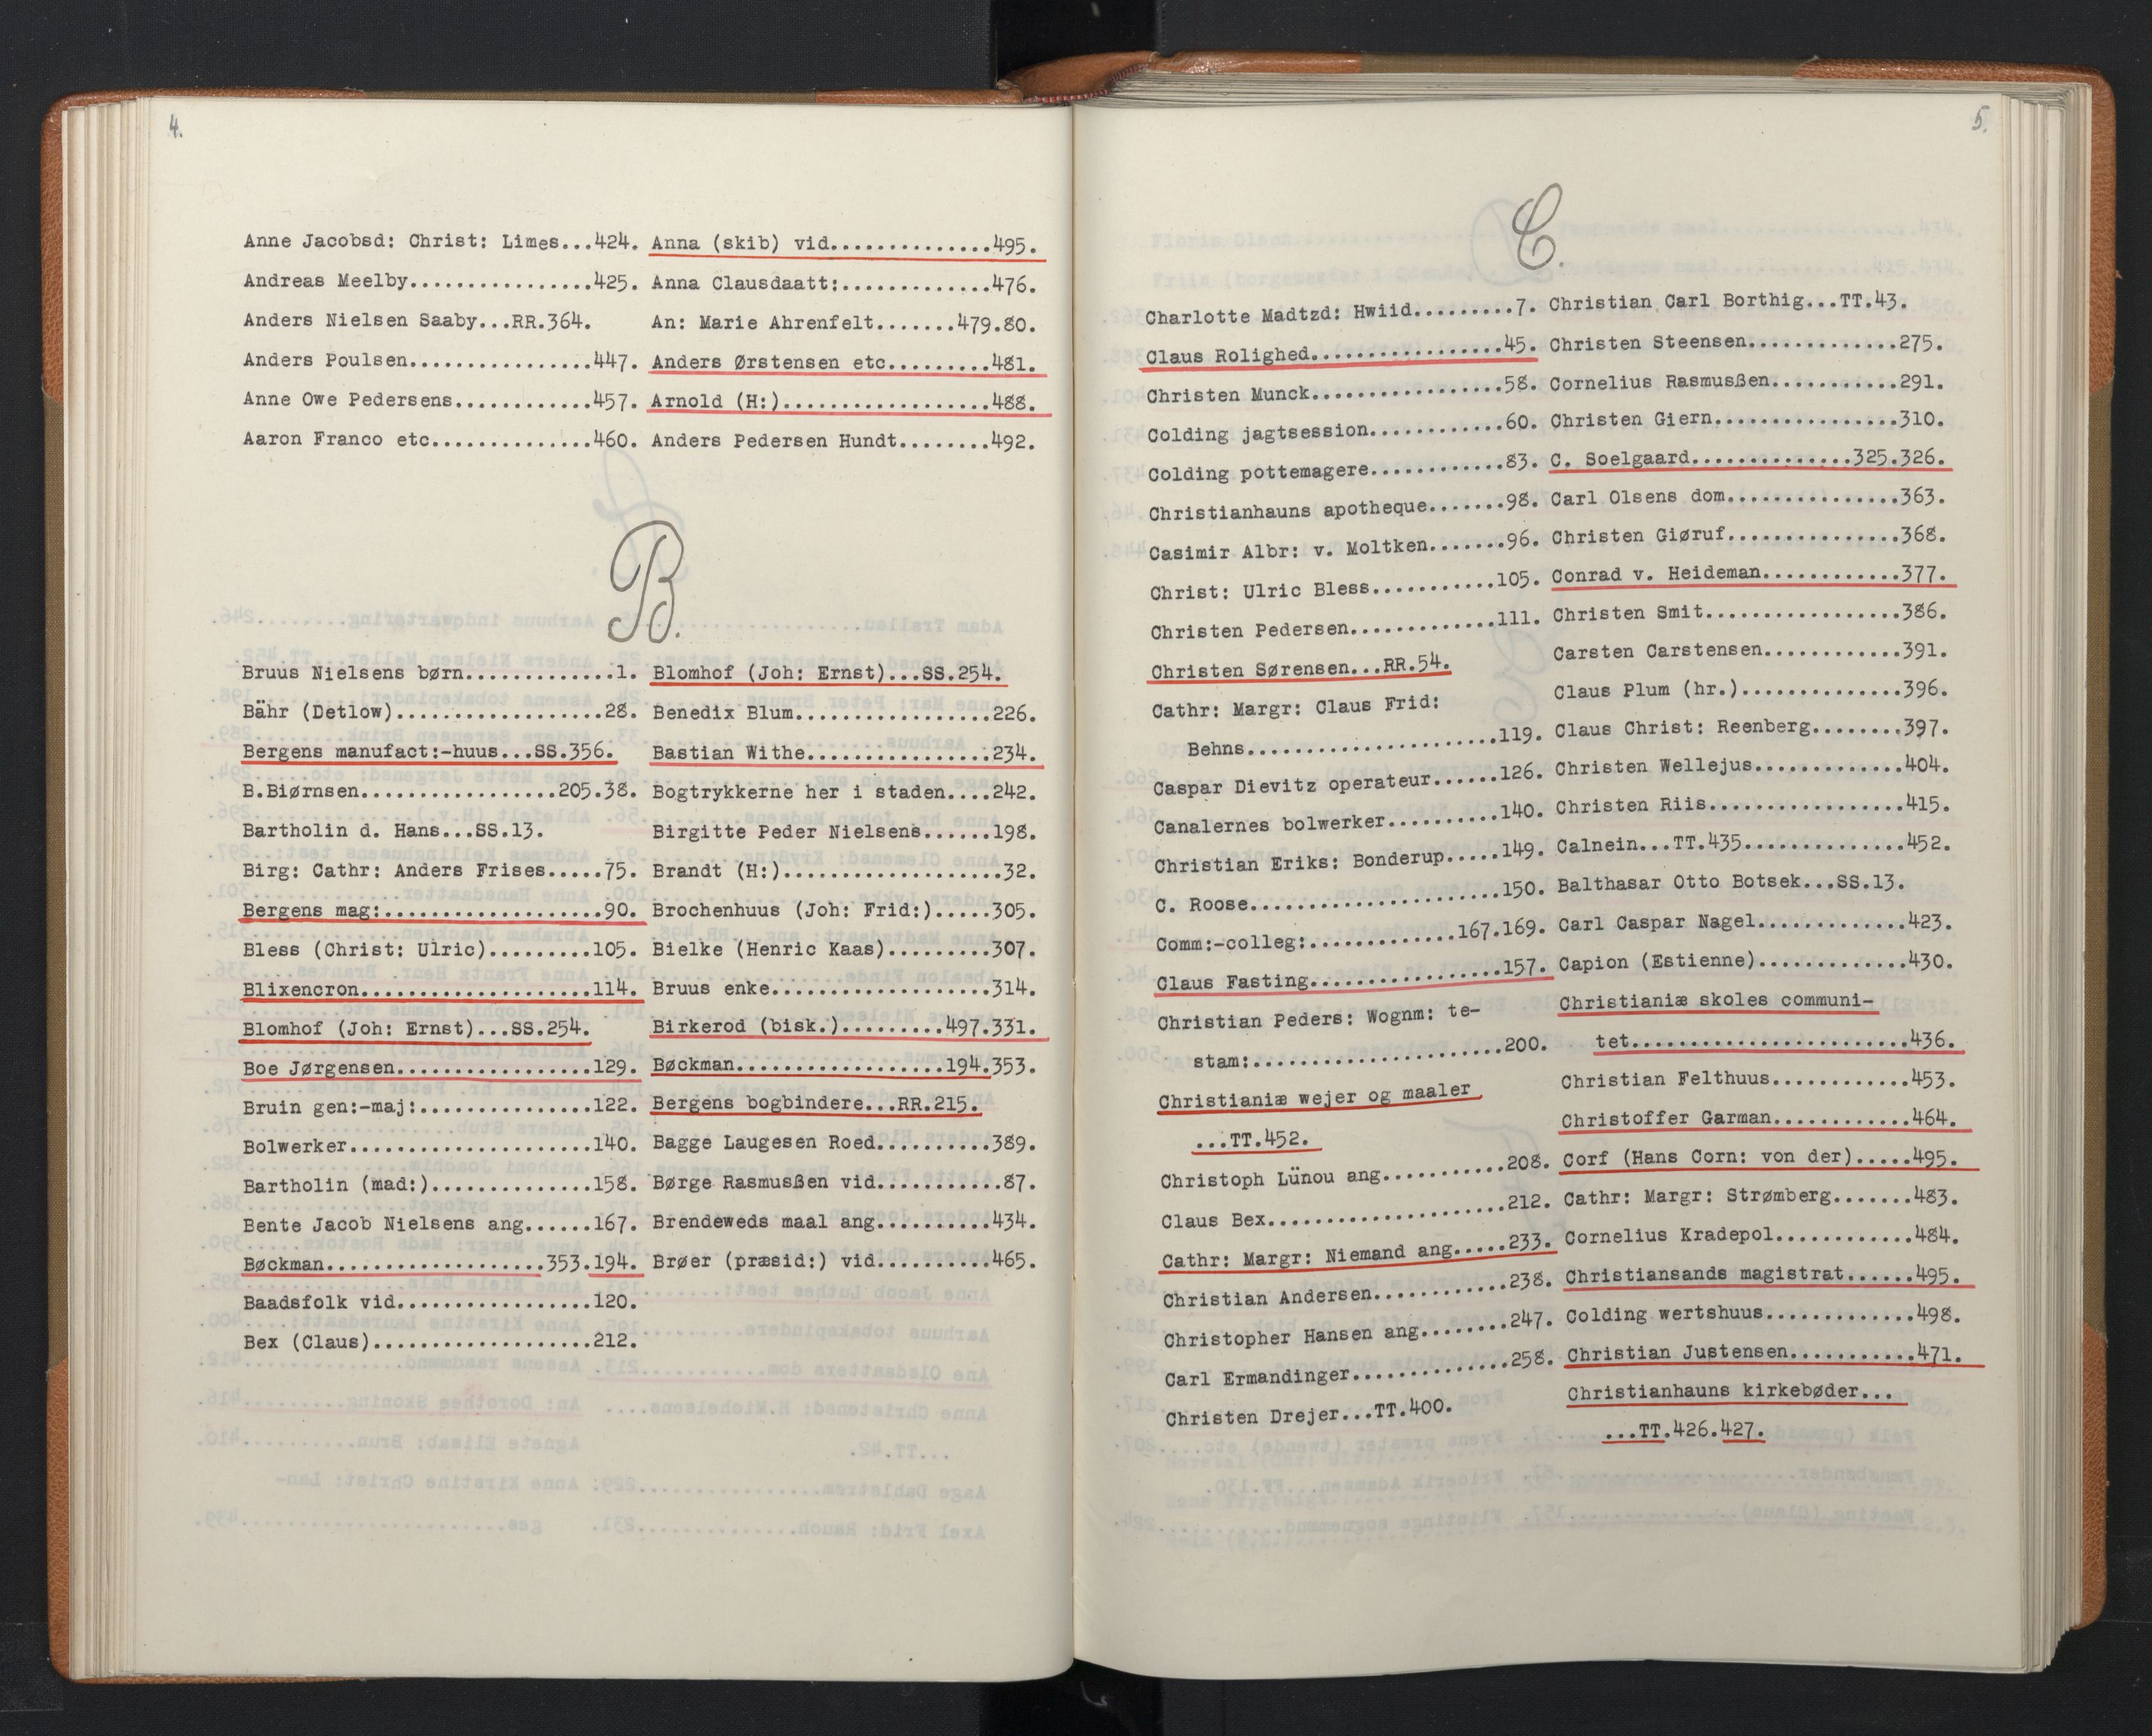 4.
Anne Jacobsd: Christ: Limes...424.
Andreas Meelby................425.
Anders Nielsen Saaby...RR.364.
Anders Poulsen................447.
Anne Owe Pedersens............457.
Aaron Franco etc..............460.
Anna (skib) vid..............495.
Anna Clausdaatt:.............476.
An: Marie Ahrenfelt.......479.80.
Anders Ørstensen etc.........481.
Arnold (H:)..................488.
Anders Pedersen Hundt........492.
B.
Bruus Nielsens børn.............1.
Bähr (Detlow)..................28.
Bergens manufact:-huus...SS.356.
B.Biørnsen.................205.38.
Bartholin d. Hans...SS.13.
Birg: Cathr: Anders Frises.....75.
Bergens mag:...................90.
Bless (Christ: Ulric).........105.
Blixencron....................114.
Blomhof (Joh: Ernst)...SS.254.
Boe Jørgensen.................129.
Bruin gen:-maj:...............122.
Bolwerker.....................140.
Bartholin (mad:)..............158.
Bente Jacob Nielsens ang......167.
Bøckman...................353.194.
Baadsfolk vid.................120.
Bex (Claus)...................212.
Blomhof (Joh: Ernst)...SS.254.
Benedix Blum.................226.
Bastian Withe................234.
Bogtrykkerne her i staden....242.
Birgitte Peder Nielsens......198.
Brandt (H:)...................32.
Brochenhuus (Joh: Frid:).....305.
Bielke (Henric Kaas).........307.
Bruus enke...................314.
Birkerod (bisk.).........497.331.
Bøckman..................194.353.
Bergens bogbindere...RR.215.
Bagge Laugesen Roed..........389.
Børge Rasmusßen vid...........87.
Brendeweds maal ang..........434.
Brøer (præsid:) vid..........465.
5.
C.
Charlotte Madtzd: Hwiid.........7.
Claus Rolighed.................45.
Christen Munck.................58.
Colding jagtsession............60.
Colding pottemagere............83.
Christianhauns apotheque.......98.
Casimir Albr: v. Moltken.......96.
Christ: Ulric Bless...........105.
Christen Pedersen.............111.
Christen Sørensen...RR.54.
Cathr: Margr: Claus Frid:
Behns......................119.
Caspar Dievitz operateur......126.
Canalernes bolwerker..........140.
Christian Eriks: Bonderup.....149.
C. Roose......................150.
Comm:-colleg:.............167.169.
Claus Fasting.................157.
Christian Peders: Wognm: te-
stam:......................200.
Christianiæ wejer og maaler
...TT.452.
Christoph Lünou ang...........208.
Claus Bex.....................212.
Cathr: Margr: Niemand ang.....233.
Christian Andersen............238.
Christopher Hansen ang........247.
Carl Ermandinger..............258.
Christen Drejer...TT.400.
Christian Carl Borthig...TT.43.
Christen Steensen.............275.
Cornelius Rasmusßen...........291.
Christen Giern................310.
C. Soelgaard..............325.326.
Carl Olsens dom...............363.
Christen Giøruf...............368.
Conrad v. Heideman............377.
Christen Smit.................386.
Carsten Carstensen............391.
Claus Plum (hr.)..............396.
Claus Christ: Reenberg........397.
Christen Wellejus.............404.
Christen Riis.................415.
Calnein...TT.435..............452.
Balthasar Otto Botsek...SS.13.
Carl Caspar Nagel.............423.
Capion (Estienne).............430.
Christianiæ skoles communi-
tet........................436.
Christian Felthuus............453.
Christoffer Garman............464.
Corf (Hans Corn: von der).....495.
Cathr: Margr: Strømberg.......483.
Cornelius Kradepol............484.
Christiansands magistrat......495.
Colding wertshuus.............498.
Christian Justensen...........471.
Christianhauns kirkebøder...
...TT.426.427.